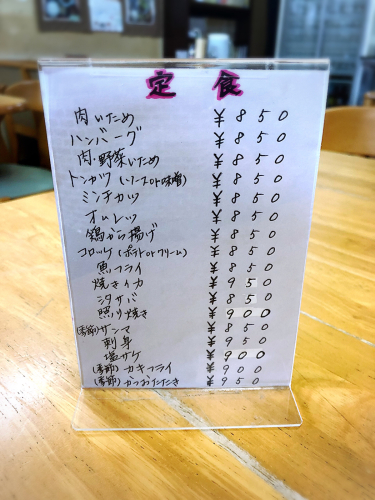 定食
肉いため ¥850
ハンバーグ ¥850
肉・野菜いため ¥850
トンカツ (ソースor味噌) ¥850
ミンチカツ ¥850
オムレツ ¥850
鶏から揚げ ¥850
コロッケ (ポテトorクリーム) ¥850
魚フライ ¥850
焼きイカ ¥950
シメサバ ¥850
照り焼き ¥900
(季節)サンマ ¥850
刺身 ¥950
塩サケ ¥900
(季節)カキフライ ¥900
(季節)かつおたたき ¥950